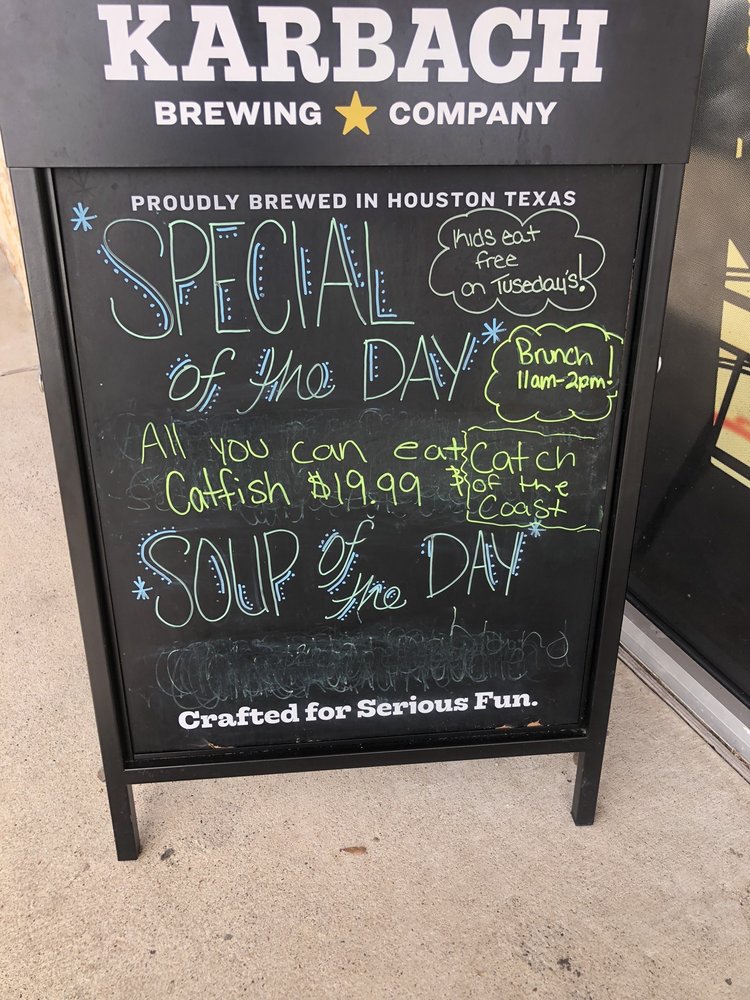 KARBACH
BREWING COMPANY
PROUDLY BREWED IN HOUSTON TEXAS
SPECIAL
of the DAY
Kids eat
free
on Tuseday's!
Brunch
11am-2pm!
All you can eat
Catfish $19.99
$
Catch
of the
Coast
SOUP of
the DAY
Crafted for Serious Fun.